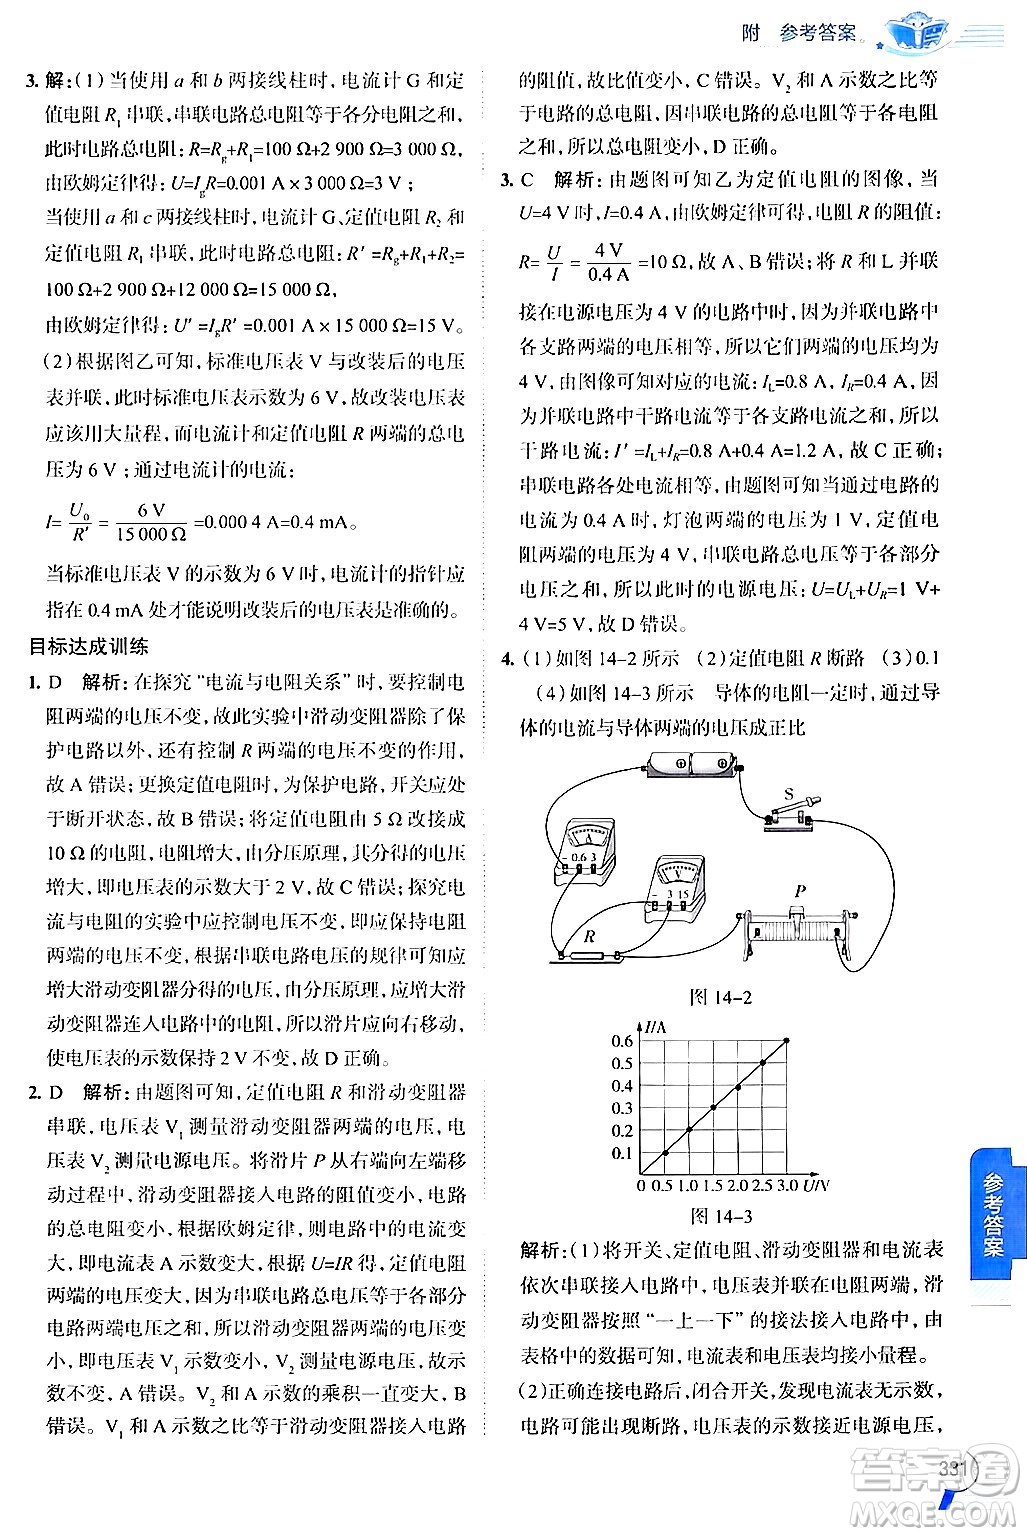 附　参考答案
3. 解:(1)当使用 a 和 b 两接线柱时,电流计 G 和定
值电阻 R₁ 串联,串联电路总电阻等于各分电阻之和,
此时电路总电阻:R=Rg+R₁=100 Ω+2 900 Ω=3 000 Ω,
由欧姆定律得:U=IgR=0.001 A×3 000 Ω=3 V;
当使用 a 和 c 两接线柱时,电流计 G、定值电阻 R₂ 和
定值电阻 R₁ 串联,此时电路总电阻:R′=Rg+R₁+R₂=
100 Ω+2 900 Ω+12 000 Ω=15 000 Ω,
由欧姆定律得:U′=IgR′=0.001 A×15 000 Ω=15 V。
(2)根据图乙可知,标准电压表 V 与改装后的电压
表并联,此时标准电压表示数为 6 V,故改装电压表
应该用大量程,而电流计和定值电阻 R 两端的总电
压为 6 V;通过电流计的电流:
I=U₀/R′=6 V/15 000 Ω=0.000 4 A=0.4 mA。
当标准电压表 V 的示数为 6 V 时,电流计的指针应
指在 0.4 mA 处才能说明改装后的电压表是准确的。
目标达成训练
1. D　解析:在探究“电流与电阻关系”时,要控制电
阻两端的电压不变,故此实验中滑动变阻器除了保
护电路以外,还有控制 R 两端的电压不变的作用,
故 A 错误;更换定值电阻时,为保护电路,开关应处
于断开状态,故 B 错误;将定值电阻由 5 Ω 改接成
10 Ω 的电阻,电阻增大,由分压原理,其分得的电压
增大,即电压表的示数大于 2 V,故 C 错误;探究电
流与电阻的实验中应控制电压不变,应保持电阻
两端的电压不变,根据串联电路电压的规律可知应
增大滑动变阻器分得的电压,由分压原理,应增大滑
动变阻器连入电路中的电阻,所以滑片应向右移动,
使电压表的示数保持 2 V 不变,故 D 正确。
2. D　解析:由题图可知,定值电阻 R 和滑动变阻器
串联,电压表 V₁ 测量滑动变阻器两端的电压,电压
表 V₂ 测量电源电压。将滑片 P 从右端向左端移
动过程中,滑动变阻器接入电路的阻值变小,电路
的总电阻变小,根据欧姆定律,则电路中的电流变
大,即电流表 A 示数变大;根据 U=IR 得,定值电阻
两端的电压变大,因为串联电路总电压等于各部分
电路两端电压之和,所以滑动变阻器两端的电压变
小,即电压表 V₁ 示数变小,V₂ 测量电源电压,故示
数不变,A 错误。V₂ 和 A 示数的乘积一直变大,B
错误。V₁ 和 A 示数之比等于滑动变阻器接入电路
的阻值,故比值变小,C 错误。V₂ 和 A 示数之比等
于电路的总电阻,因串联电路的总电阻等于各电阻
之和,所以总电阻变小,D 正确。
3. C　解析:由题图可知乙为定值电阻的图像,当
U=4 V 时,I=0.4 A,由欧姆定律可得,电阻 R 的阻值:
R=U/I=4 V/0.4 A=10 Ω,故 A、B 错误;将 R 和 L 并联
接在电源电压为 4 V 的电路中时,因并联电路中
各支路两端的电压相等,所以,它们两端的电压均为
4 V,由图像可知对应的电流:IL=0.8 A,IR=0.4 A,因
为并联电路中干路电流等于各支路电流之和,所以
干路电流:I′=IL+IR=0.8 A+0.4 A=1.2 A,故 C 正确;
串联电路各处电流相等,由题图可知当通过电路的
电流为 0.4 A 时,灯泡两端的电压为 1 V,定值电
阻两端的电压为 4 V,串联电路总电压等于各部分
电压之和,所以,此时的电源电压:U=UL+UR=1 V+
4 V=5 V,故 D 错误。
4. (1)如图 14-2 所示　(2)定值电阻 R 断路　(3)0.1
(4)如图 14-3 所示　导体的电阻一定时,通过导
体的电流与导体两端的电压成正比
S
A
- 0.6 3
V
- 3 15
R
P
图 14-2
I/A
0.6
0.5
0.4
0.3
0.2
0.1
0 0.5 1.0 1.5 2.0 2.5 3.0 U/V
图 14-3
解析:(1)将开关、定值电阻、滑动变阻器和电流表
依次串联接入电路中,电压表并联在电阻两端,滑
动变阻器按照“一上一下”的接法接入电路中,由
表格中的数据可知,电流表和电压表均选择小量程。
(2)正确连接电路后,闭合开关,发现电流表无示数,
电路可能出现断路,电压表的示数接近电源电压,
参考答案
331
答案圈
MXQE.COM